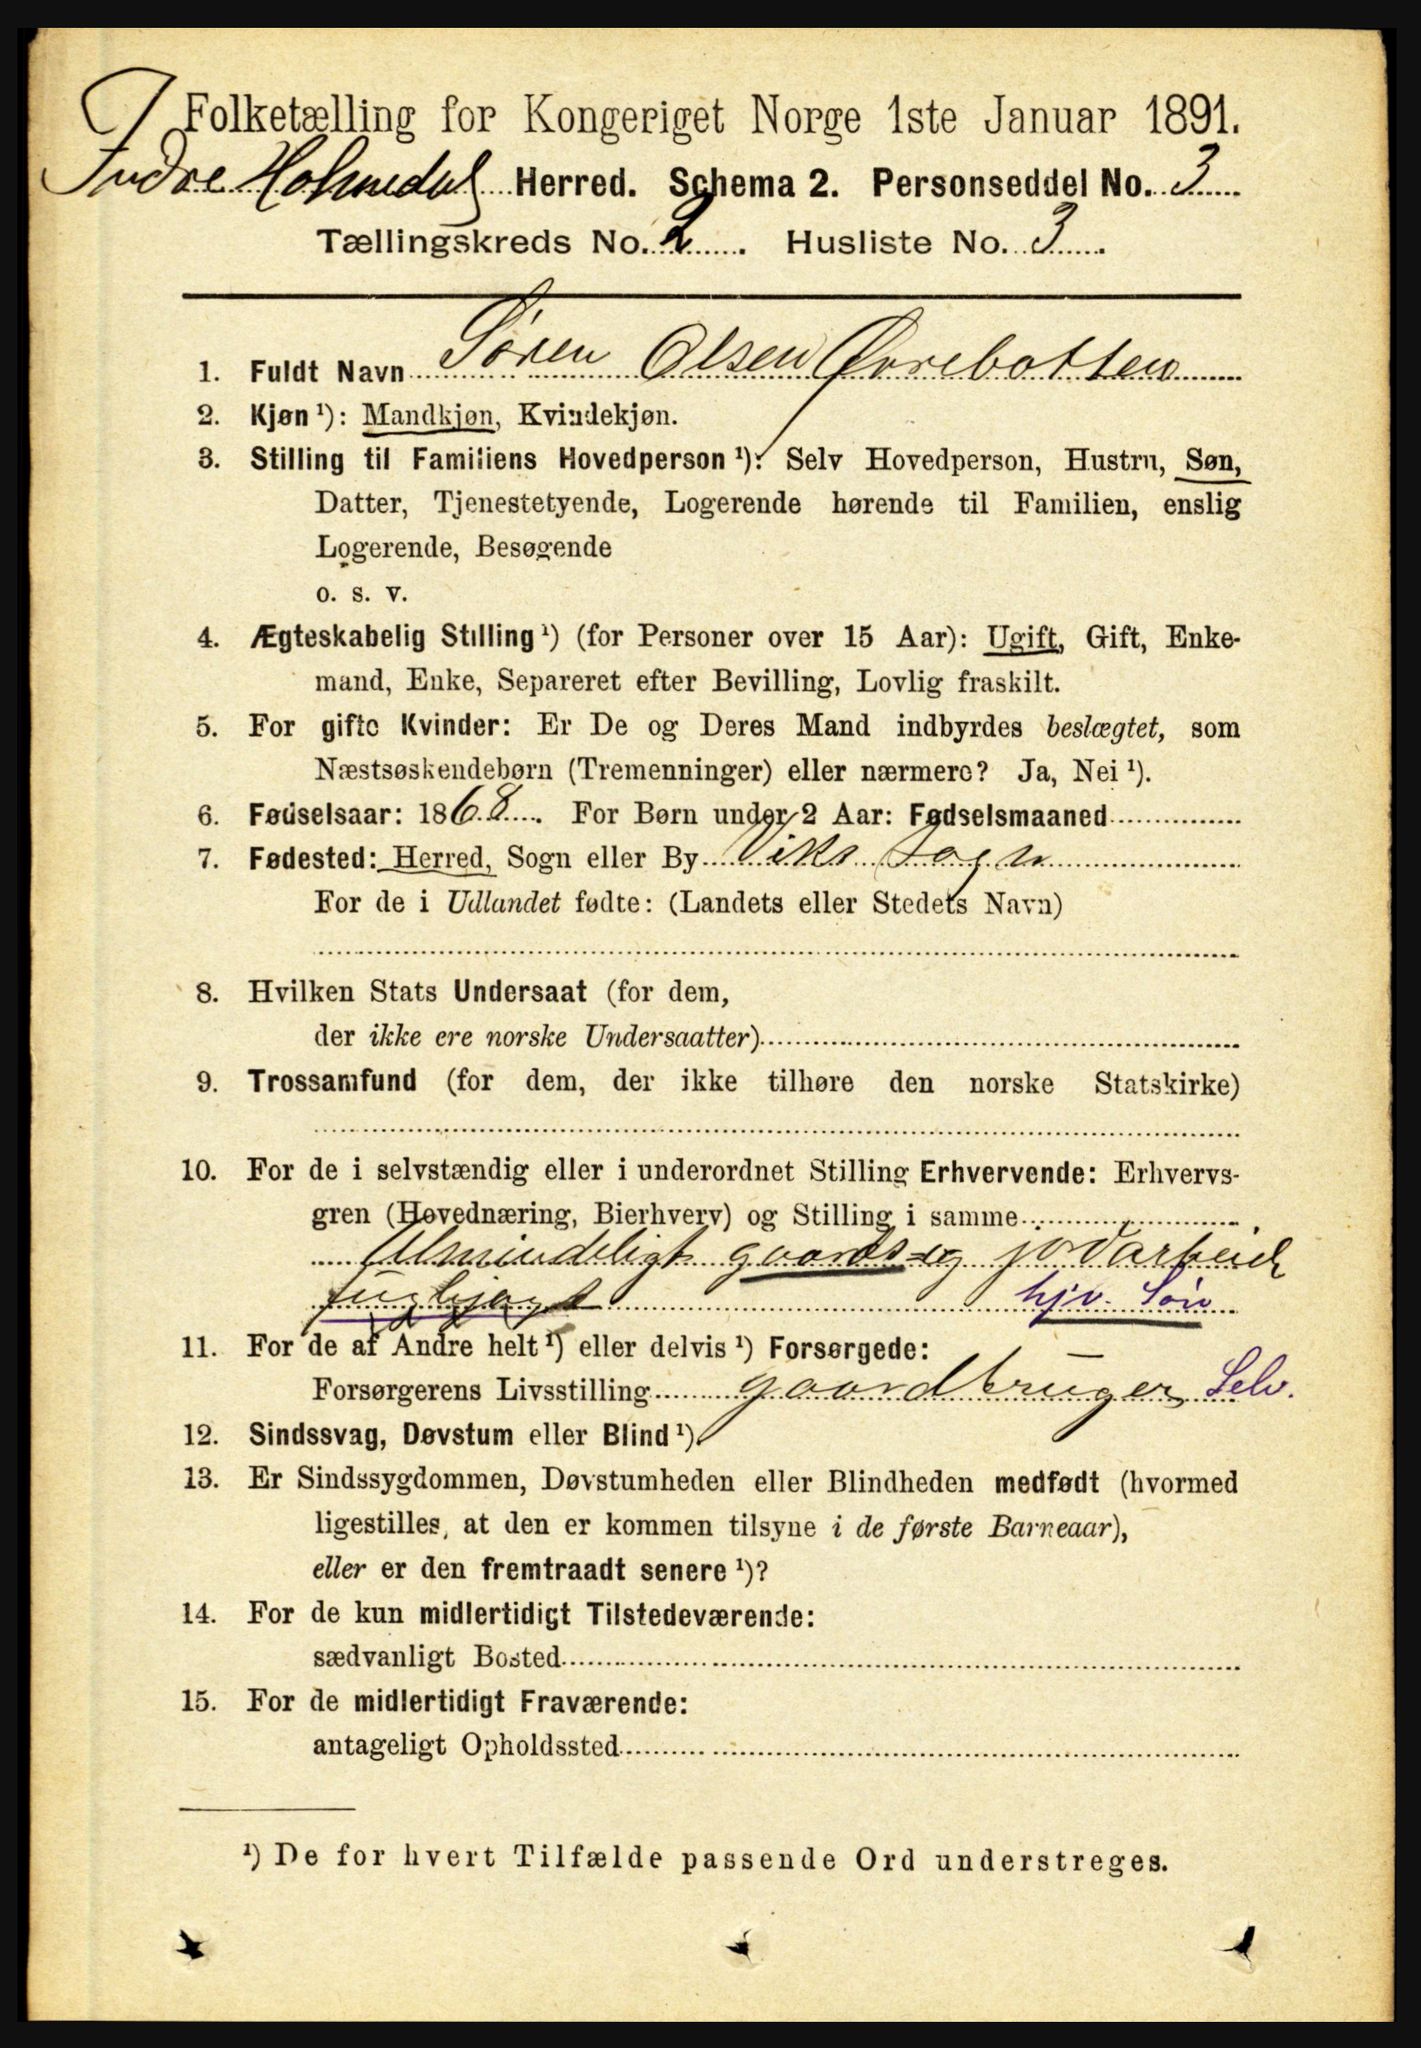 Folketælling for Kongeriget Norge 1ste Januar 1891.
Indre Holmedal Herred. Schema 2. Personseddel No. 3
Tællingskreds No. 2. Husliste No. 3.
1. Fuldt Navn Søren Olsen Øvrebotten
2. Kjøn ¹): Mandkjøn, Kvindekjøn.
3. Stilling til Familiens Hovedperson ¹): Selv Hovedperson, Hustru, Søn,
Datter, Tjenestetyende, Logerende hørende til Familien, enslig
Logerende, Besøgende
o. s. v.
4. Ægteskabelig Stilling ¹) (for Personer over 15 Aar): Ugift, Gift, Enke-
mand, Enke, Separeret efter Bevilling, Lovlig fraskilt.
5. For gifte Kvinder: Er De og Deres Mand indbyrdes beslægtet, som
Næstsøskendebørn (Tremenninger) eller nærmere? Ja, Nei ¹).
6. Fødselsaar: 1868. For Børn under 2 Aar: Fødselsmaaned
7. Fødested: Herred, Sogn eller By Viks Sogn
For de i Udlandet fødte: (Landets eller Stedets Navn)
8. Hvilken Stats Undersaat (for dem,
der ikke ere norske Undersaatter)
9. Trossamfund (for dem, der ikke tilhøre den norske Statskirke)
10. For de i selvstændig eller i underordnet Stilling Erhvervende: Erhvervs-
gren (Hovednæring, Bierhverv) og Stilling i samme
Almindeligt gaards og jordarbeide
fuglejagt hjv. Søn
11. For de af Andre helt ¹) eller delvis ¹) Forsørgede:
Forsørgerens Livsstilling gaardbruger Selv.
12. Sindssvag, Døvstum eller Blind ¹).
13. Er Sindssygdommen, Døvstumheden eller Blindheden medfødt (hvormed
ligestilles, at den er kommen tilsyne i de første Barneaar),
eller er den fremtraadt senere ¹)?
14. For de kun midlertidigt Tilstedeværende:
sædvanligt Bosted
15. For de midlertidigt Fraværende:
antageligt Opholdssted
¹) De for hvert Tilfælde passende Ord understreges.